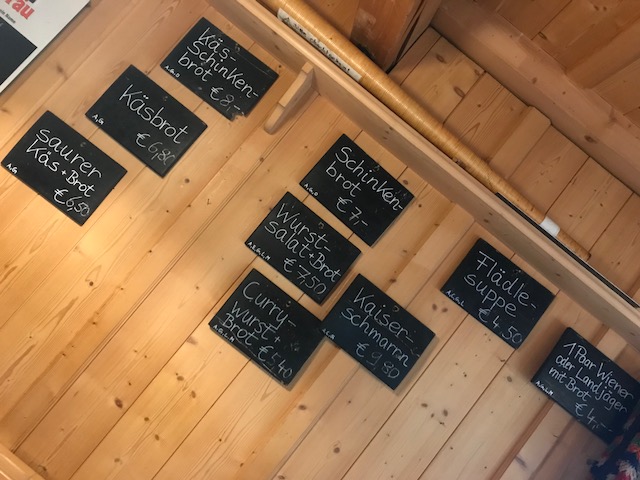 räu
Käs-
Schinken-
brot
€8,-
A,G,O
Käsbrot
€6,80
A,G
saurer
Käs + Brot
€6,50
A,G
Schinken
brot
€7,-
A,G,O
Wurst-
salat+Brot
€7,50
Curry-
wurst +
Brot €5,40
Kaiser-
schmarrn
€9,80
Flädle-
suppe
€4,50
1 Paar Wiener
oder Landjäger
mit Brot
€4,-